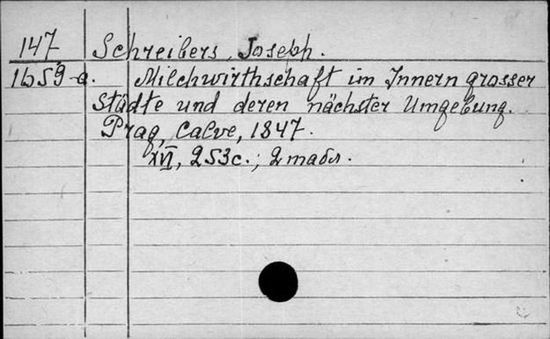 147 Schreibers, Joseph.
1659-a. Milchwirthschaft im Innern grosser
Städte und deren nächster Umgebung.
Prag, Calve, 1847.
XVI, 253c.; 2 табл.